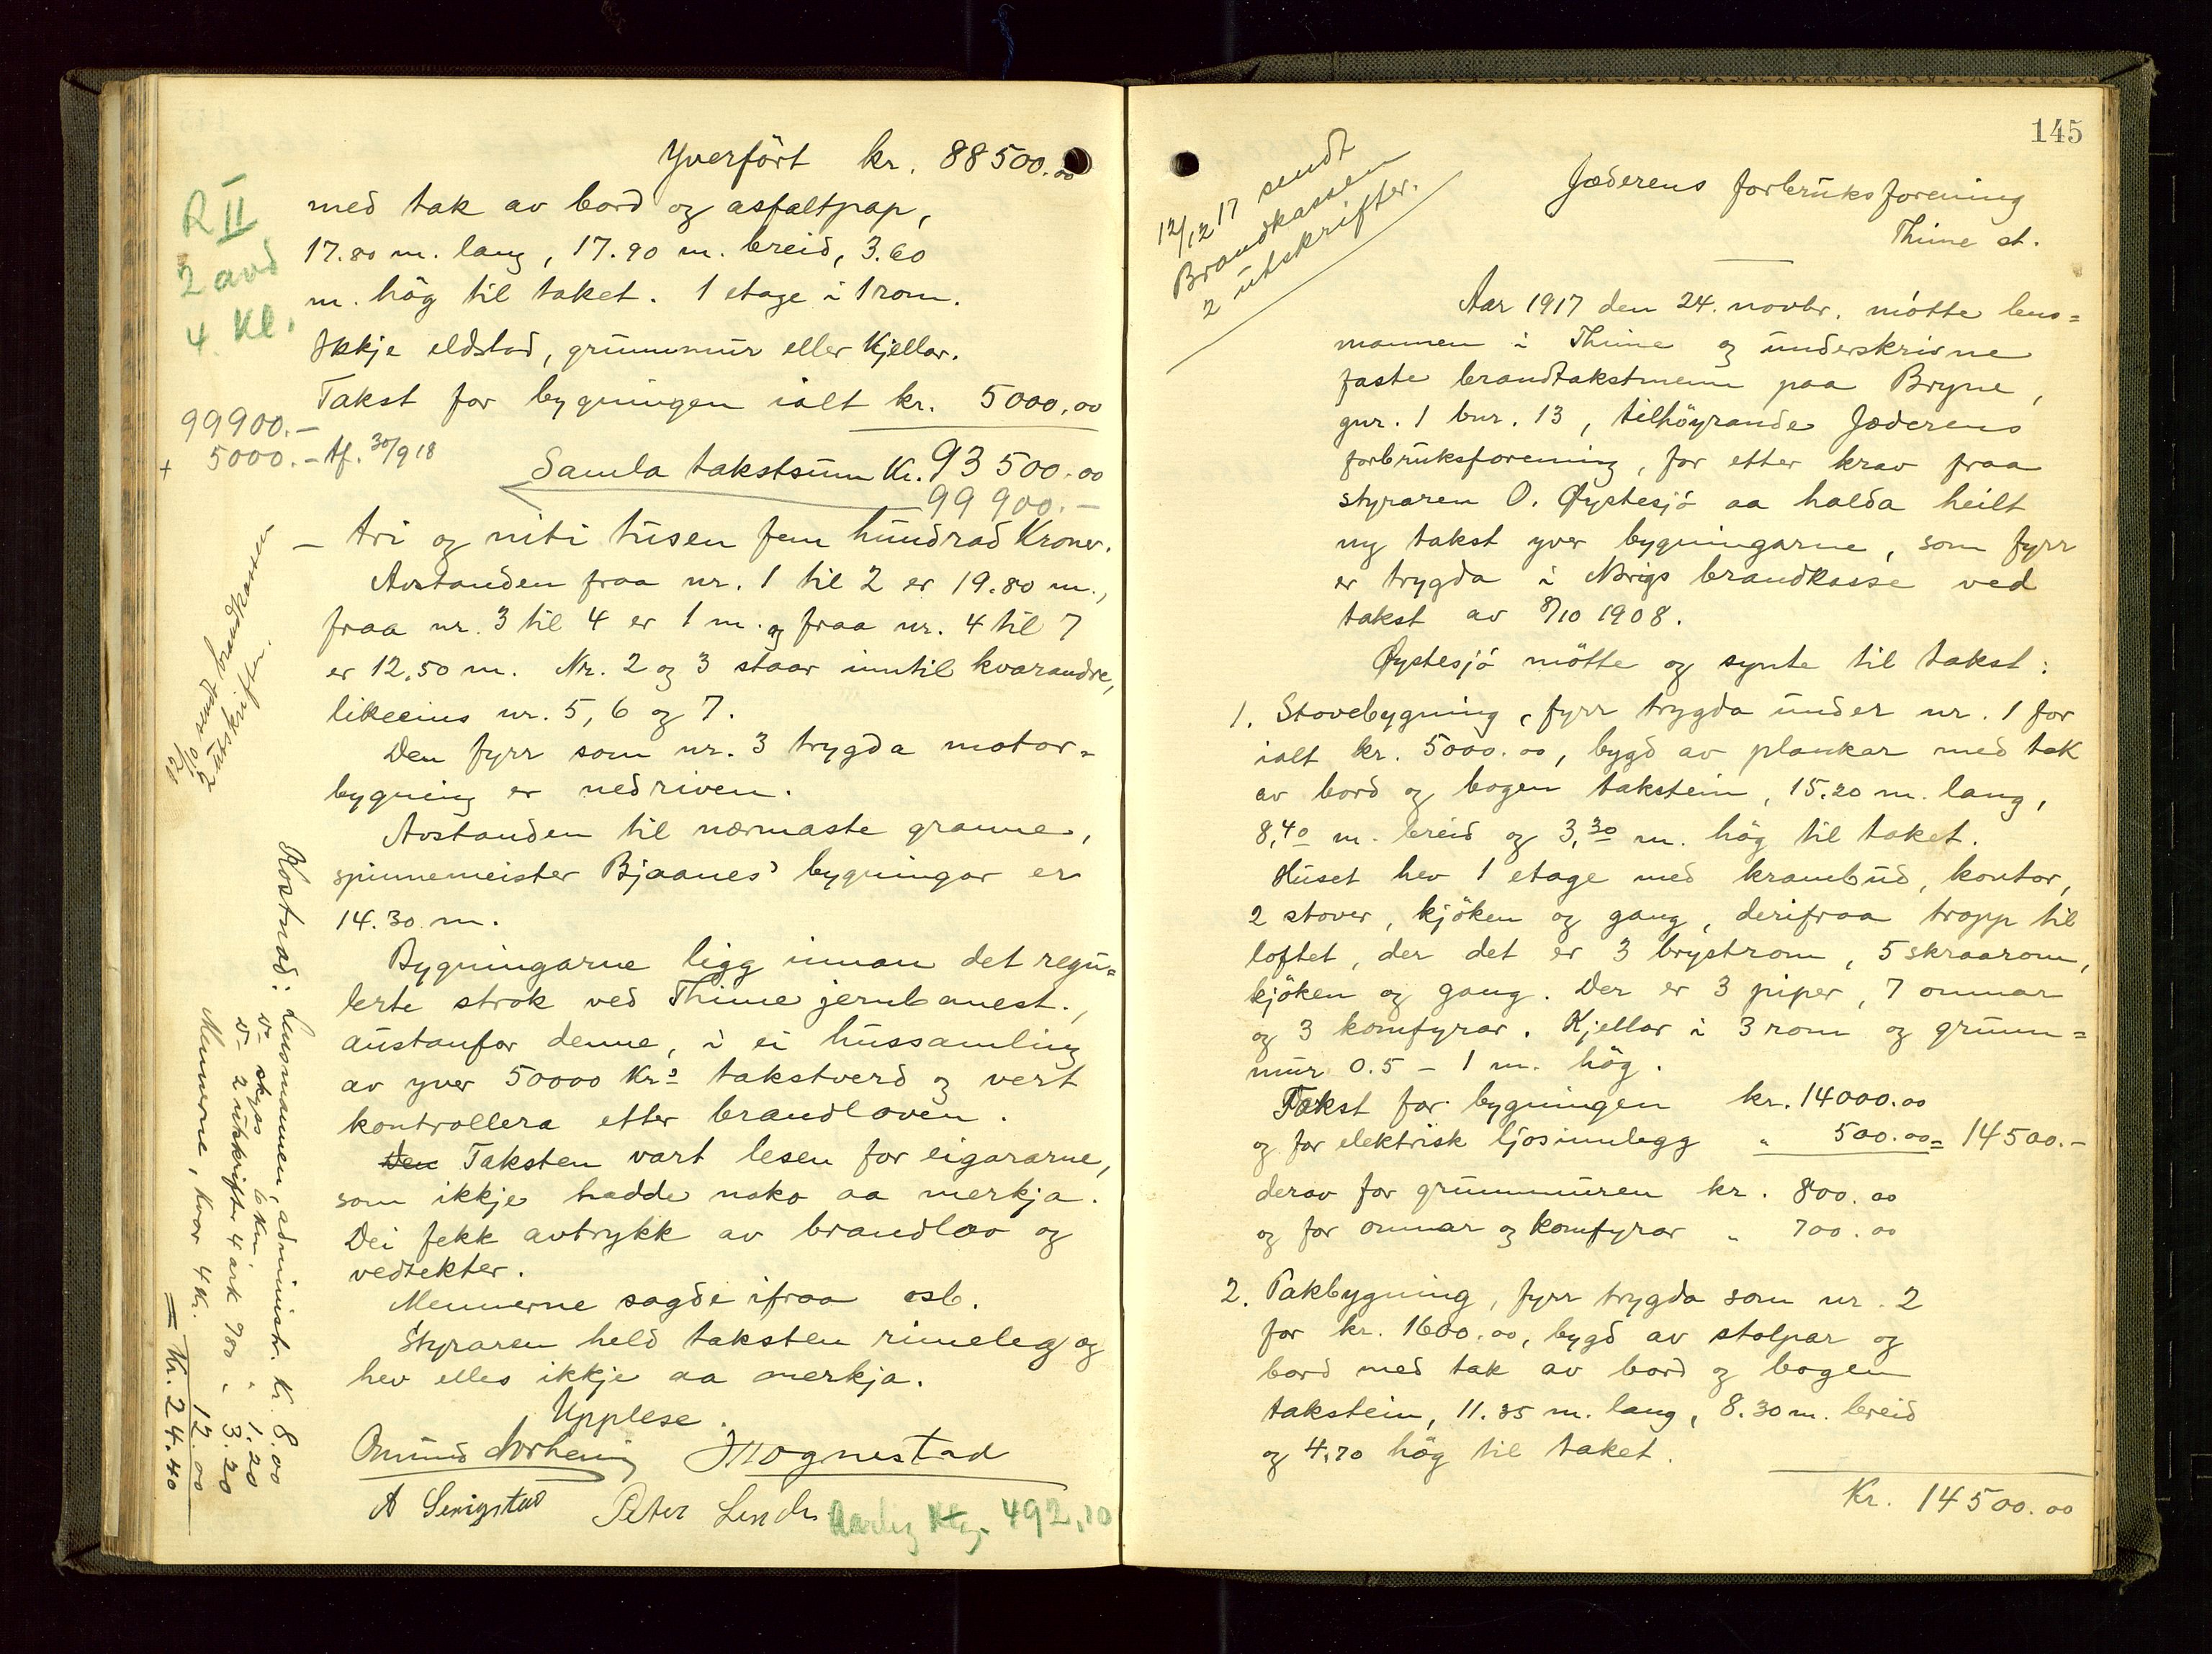 Yverført kr. 88500.00
R II
2 avd
4. Kl.
med tak av bord og asfaltpap,
17.80 m. lang, 17.90 m. breid, 3.60
m. høg til taket. 1 etage i 1 rom.
Ikkje eldstad, grunnmur eller Kjellar.
Takst for bygningen ialt kr. 5000.00
99900.-
+ 5000.- Af. 30/9 18
Samla takstsum Kr. 93500.00
99900.-
- tri og niti tusen fem hundrad Kroner.
Avstanden fraa nr. 1 til 2 er 19.80 m.,
fraa nr. 3 til 4 er 1 m. og fraa nr. 4 til 7
er 12.50 m. Nr. 2 og 3 staar inntil kvarandre,
likeeins nr. 5, 6 og 7.
Den fyrr som nr. 3 trygda motor=
bygning er nedriven.
Avstanden til nærmaste granne,
spinnemeister Bjaanes' bygningar er
14.30 m.
Bygningarne ligg innan det regu=
lerte strok ved Thime jernbanest.,
austanfor denne, i ei hussamling
av yver 50000 Kr's takstverd og vert
kontrollera etter brandloven.
Den Taksten vart lesen for eigararne,
som ikkje hadde noko aa merkja.
Dei fekk avtrykk av brandlov og
vedtekter.
Mennerne sagde ifraa osb.
Styraren held taksten rimeleg og
hev elles ikkje aa merkja.
Upplese.
Omund Norheim J Mognestad
A Serigstad Peter Lende
Aarleg Ktg. 492,10
12/10 sendt brandkassen
2 utskrifter.
Kostnad: Lensmannen, administr. Kr. 8.00
v- skyss 6 Km. " 1.20
v- 2 utskrifter 4 ark 980 " 3.20
Mennerne, kvar 4 Kr. 12.00
= Kr. 24.40
145
12/12 17 sendt
Brandkassen
2 utskrifter.
Jæderens forbruksforening
Thime st.
Aar 1917 den 24. novbr. møtte lens=
mannen i Thime og underskrivne
faste brandtakstmenn paa Bryne,
gnr. 1 bnr. 13, tilhøyrande Jæderens
forbruksforening, for etter krav fraa
styraren O. Øystesjø aa halda heilt
ny takst yver bygningarne, som fyrr
er trygda i Norigs brandkasse ved
takst av 8/10 1908.
Øystesjø møtte og synte til takst:
1. Stovebygning, fyrr trygda under nr. 1 for
ialt kr. 5000.00, bygd av plankar med tak
av bord og bogen takstein, 15.20 m. lang,
8,40 m. breid og 3,30 m. høg til taket.
Huset hev 1 etage med krambud, kontor,
2 stover, kjøken og gang, derifraa tropp til
loftet, der det er 3 brystrom, 5 skraarom,
kjøken og gang. Der er 3 piper, 7 omnar
og 3 komfyrar. Kjellar i 3 rom og grunn=
mur 0.5 - 1 m. høg.
Takst for bygningen kr. 14000.00
og for elektrisk ljosinnlegg " 500.00 = 14500.-
derav for grunnmuren kr. 800.00
og for omnar og komfyrar " 700.00
2. Pakbygning, fyrr trygda som nr. 2
for kr. 1600.00, bygd av stolpar og
bord med tak av bord og bogen
takstein, 11.35 m. lang, 8.30 m. breid
og 4.70 høg til taket.
Kr. 14500.00